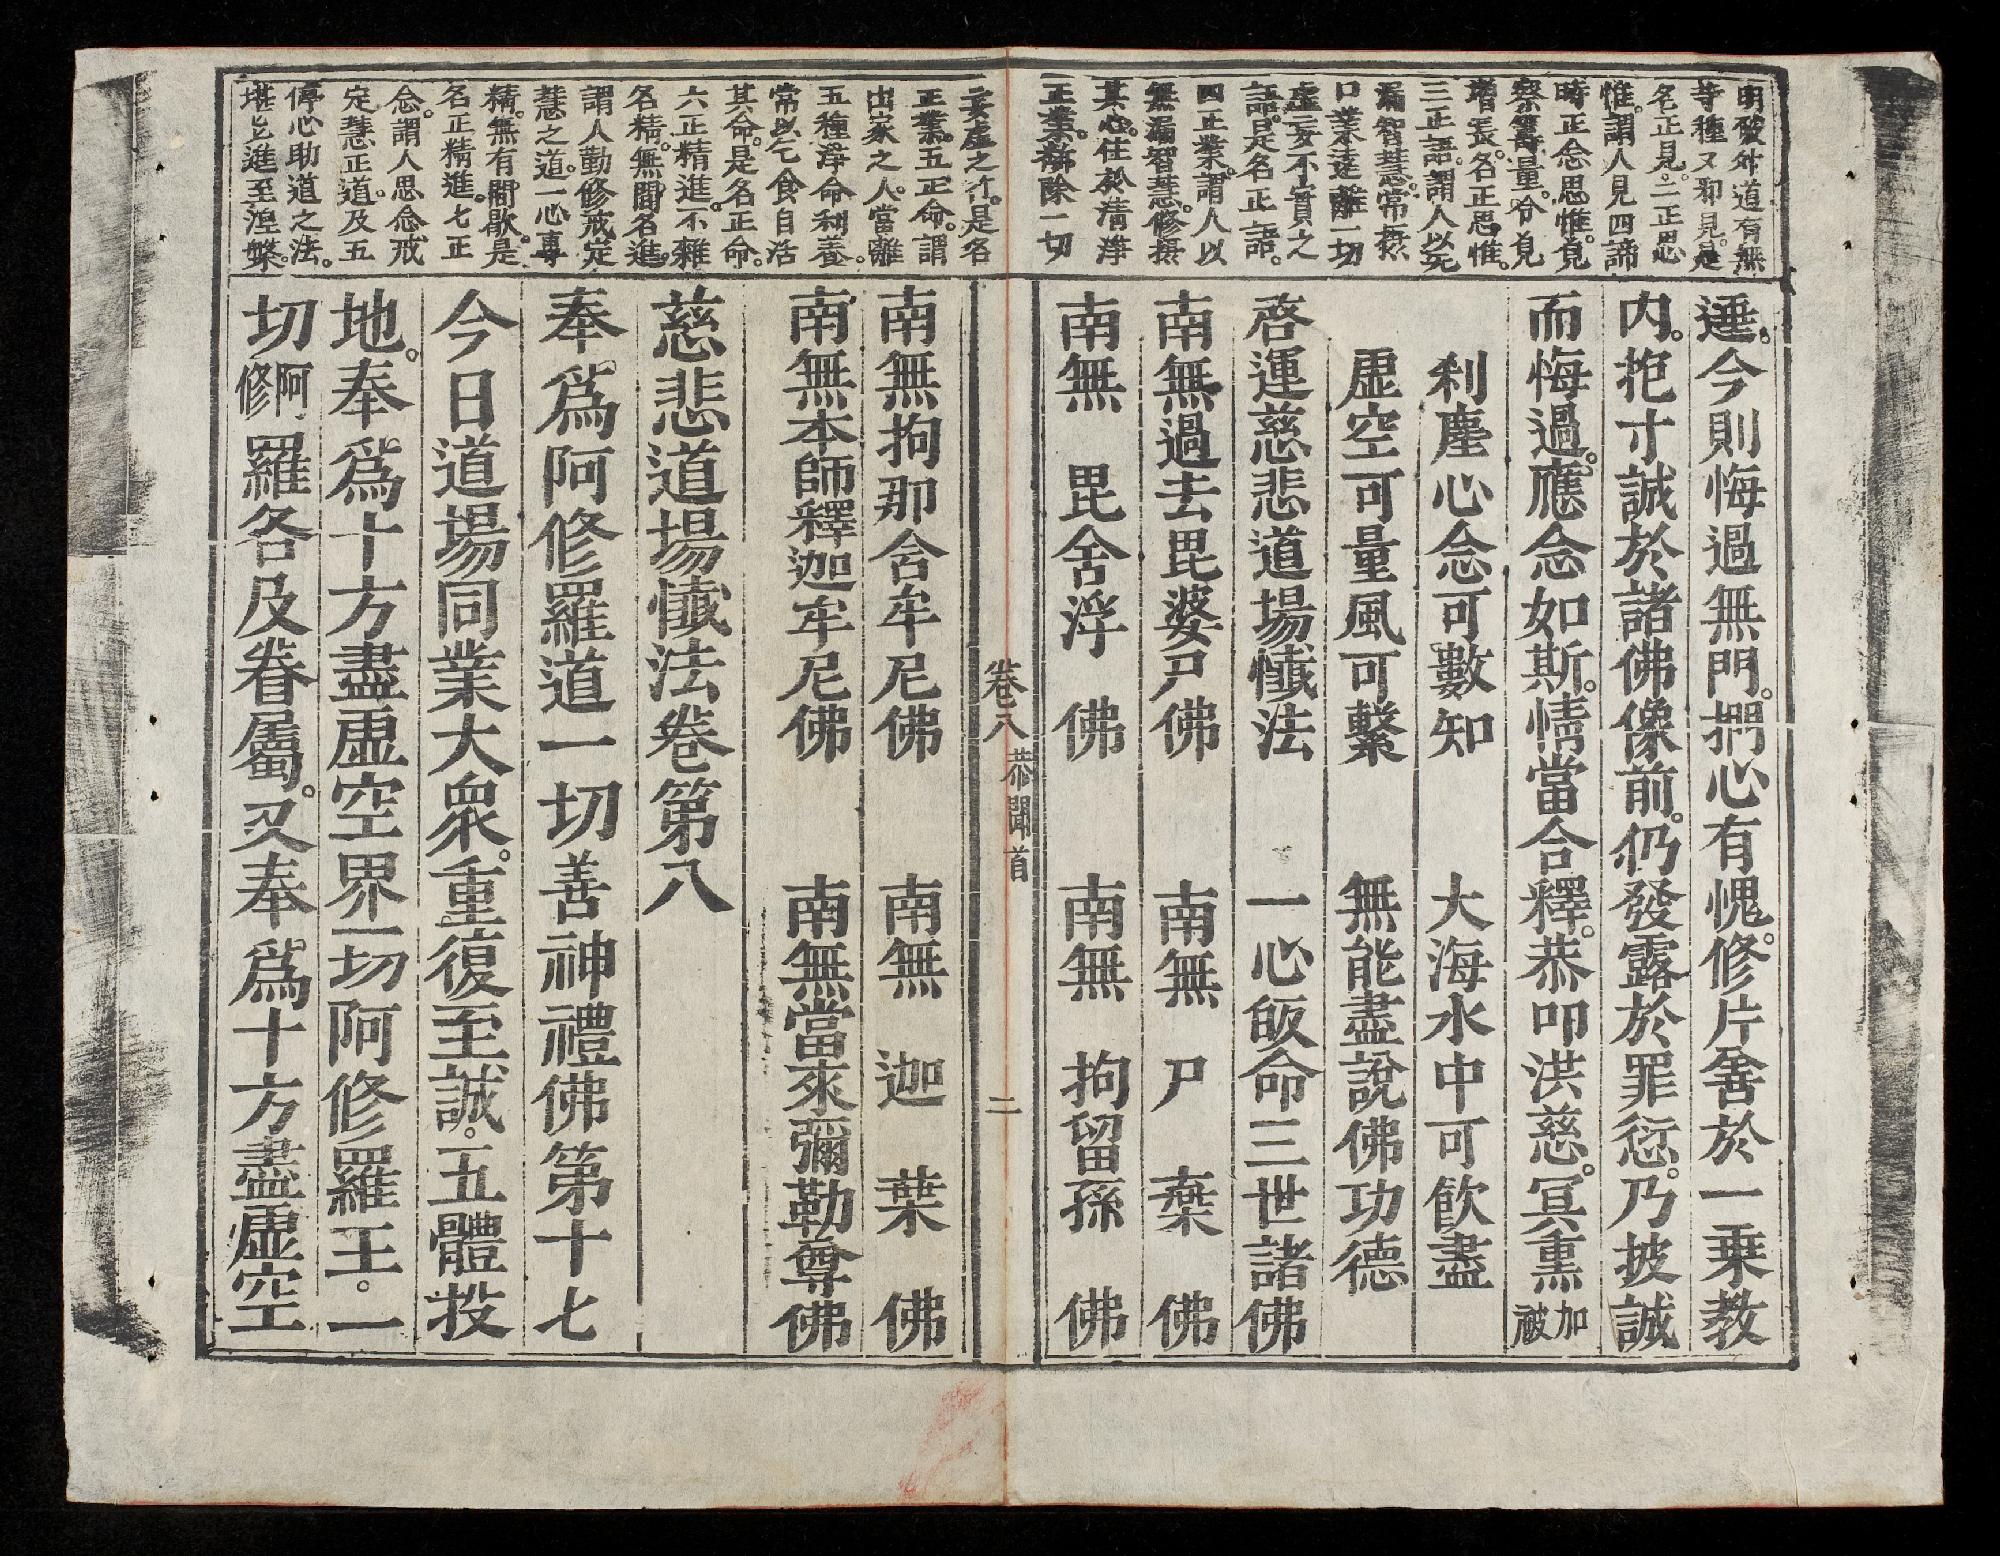 明破外道有無
等種又邪見是
名正見二正思
惟謂人見四諦
時正念思惟覓
察籌量令覓
增長名正思惟
三正語謂人以无
漏智慧常摂
口業遠離一切
虛妄不實之
語是名正語
四正業謂人以
無漏智慧修摂
其心住於清淨
正業除一切
妄虛之行是名
正業五正命謂
出家之人當離
五種淨命利養
常以乞食自活
其命是名正命
六正精進不雜
名精無間名進
謂人勤修戒定
慧之道一心專
精無有間歇是
名正精進七正
念謂人思念戒
定慧正道及五
停心助道之法
堪能進至涅槃
今則悔過無門。捫心有愧。修片善於一乗教
内。抱寸誠於諸佛像前。仍發露於罪愆。乃披誠
而悔過。應念如斯。情當合釋。恭叩洪慈。冥熏加被
刹塵心念可數知　大海水中可飲盡
虛空可量風可繫　無能盡說佛功德
啓運慈悲道場懺法　一心皈命三世諸佛
南無過去毘婆尸佛　南無尸棄佛
南無毘舍浮佛　南無拘留孫佛
卷八　恭聞首　二
南無拘那含牟尼佛　南無迦葉佛
南無本師釋迦牟尼佛　南無當來彌勒尊佛
慈悲道場懺法卷第八
奉爲阿修羅道一切善神禮佛第十七
今日道場同業大衆。重復至誠。五體投
地。奉爲十方盡虛空界一切阿修羅王。一
切阿修羅各及眷屬。又奉爲十方盡虛空